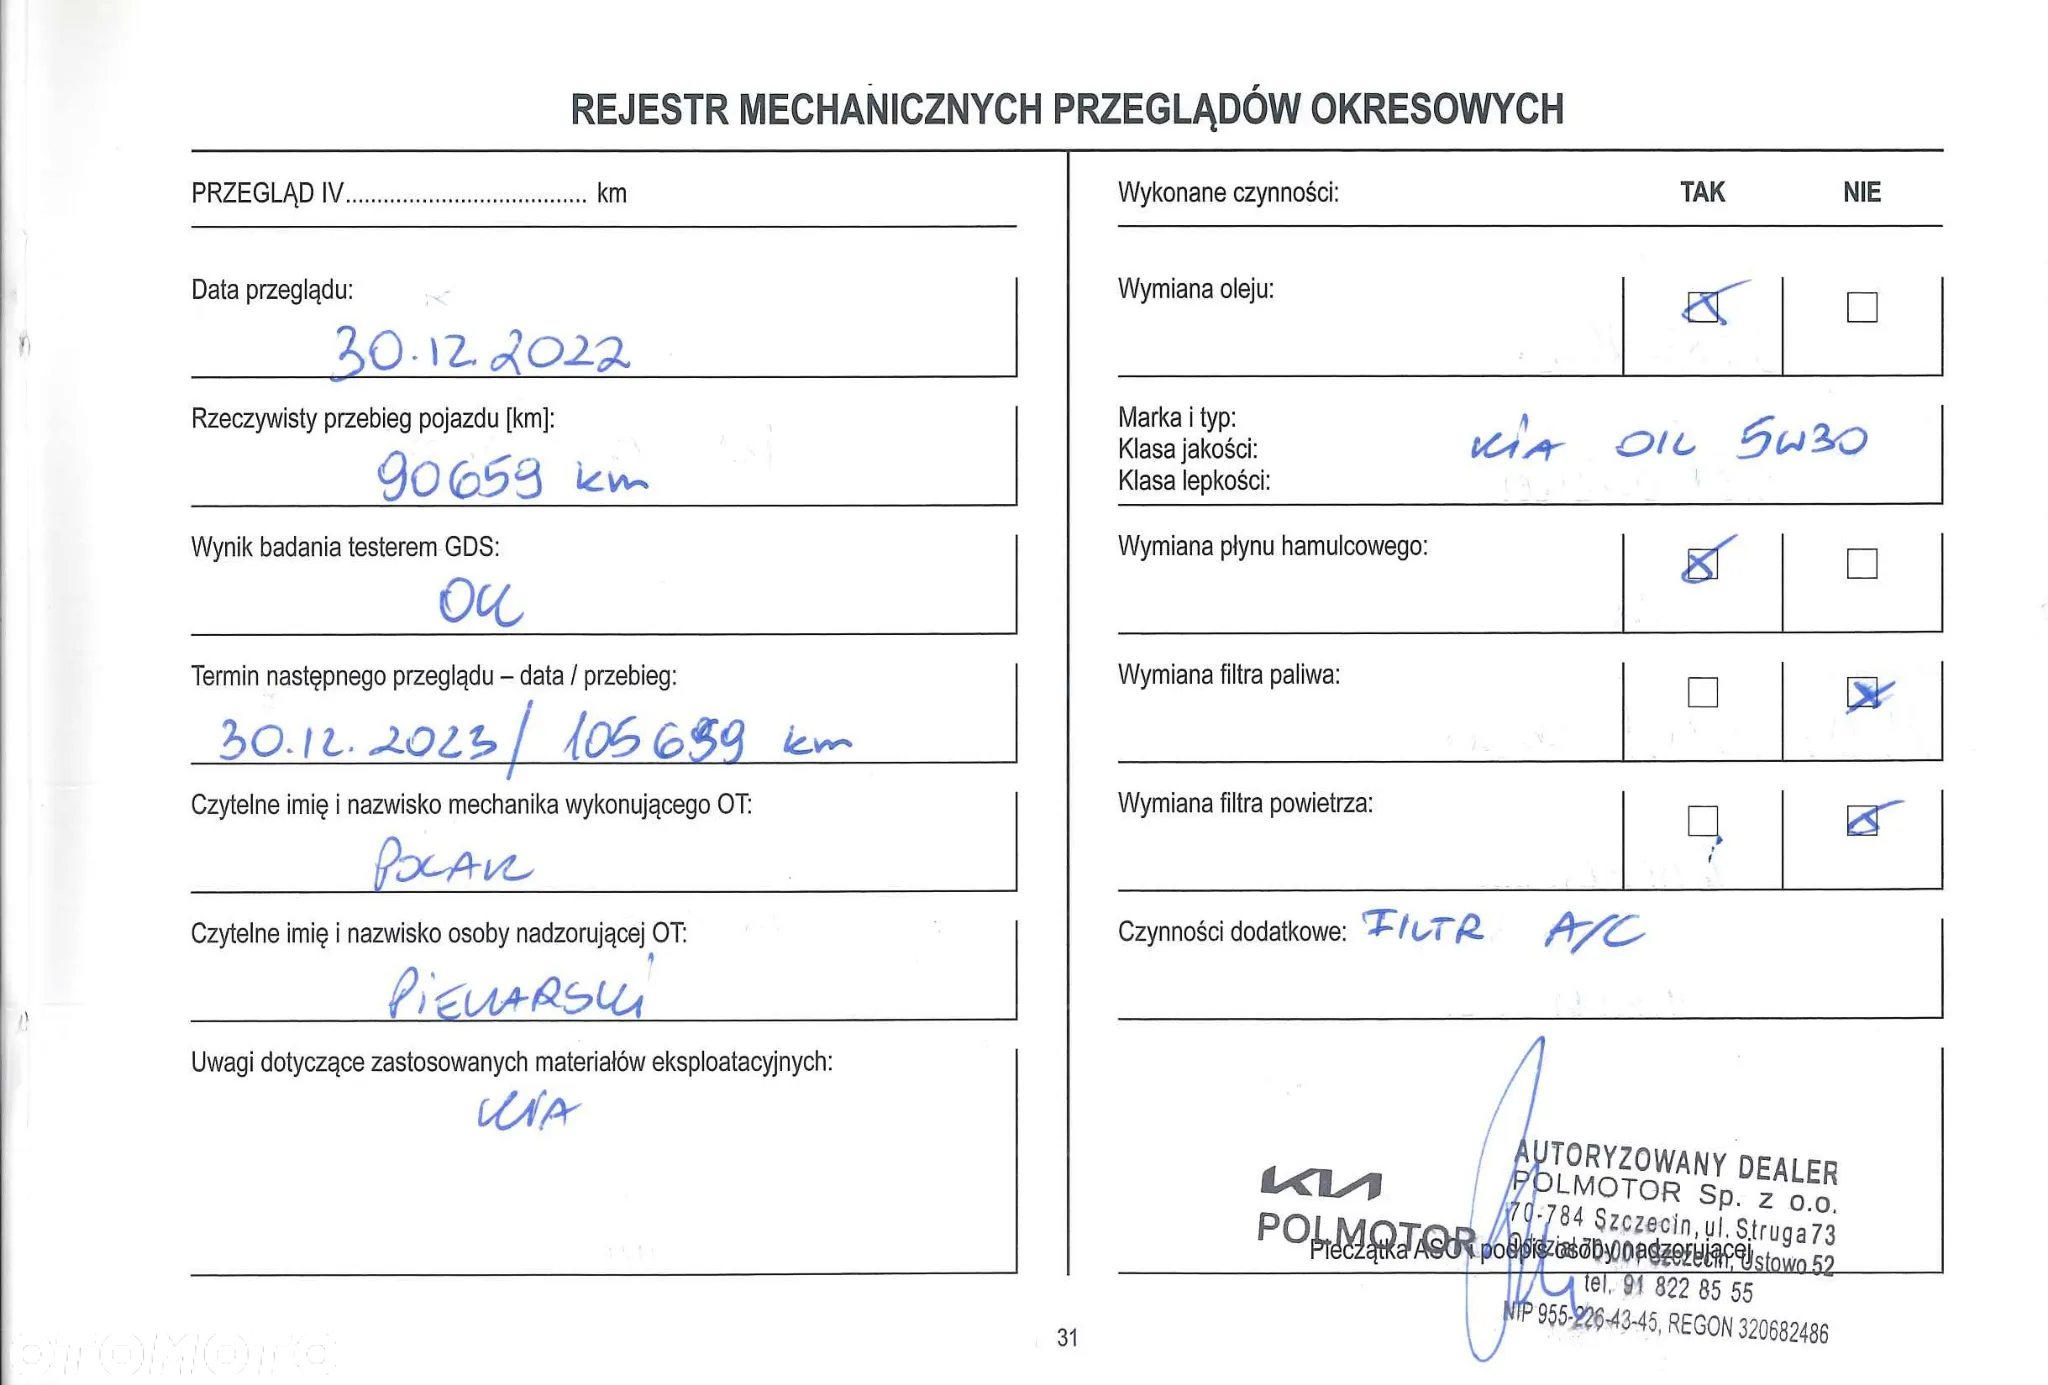 REJESTR MECHANICZNYCH PRZEGLĄDÓW OKRESOWYCH
PRZEGLĄD IV...................................... km
Data przeglądu:
30.12.2022
Rzeczywisty przebieg pojazdu [km]:
90659 km
Wynik badania testerem GDS:
OK
Termin następnego przeglądu – data / przebieg:
30.12.2023 / 105659 km
Czytelne imię i nazwisko mechanika wykonującego OT:
POLAK
Czytelne imię i nazwisko osoby nadzorującej OT:
PIEKARSKI
Uwagi dotyczące zastosowanych materiałów eksploatacyjnych:
KIA
Wykonane czynności: TAK NIE
Wymiana oleju:
Marka i typ:
Klasa jakości: KIA OIL 5W30
Klasa lepkości:
Wymiana płynu hamulcowego:
Wymiana filtra paliwa:
Wymiana filtra powietrza:
Czynności dodatkowe: FILTR A/C
KIA
POLMOTOR
AUTORYZOWANY DEALER
POLMOTOR Sp. z o.o.
70-784 Szczecin, ul. Struga 73
Oddział 70-001 Szczecin, Ustowo 52
tel. 91 822 85 55
NIP 955-226-43-45, REGON 320682486
Pieczątka ASO i podpis osoby nadzorującej
31
OTOMOTO